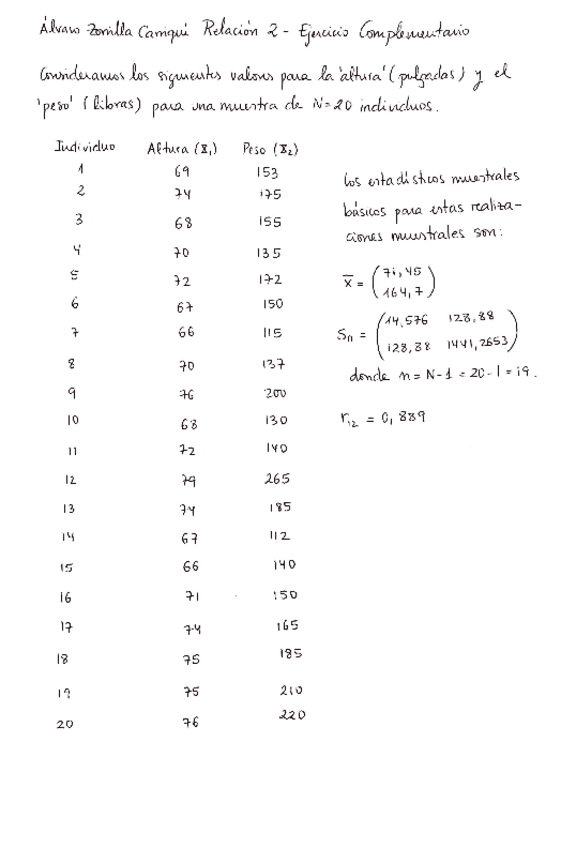 Álvaro Zorrilla Carriquí Relación 2 - Ejercicio Complementario
Consideramos los siguientes valores para la 'altura' (pulgadas) y el
'peso' (libras) para una muestra de N=20 individuos.
Individuo Altura (X₁) Peso (X₂)
1 69 153
2 74 175
3 68 155
4 70 135
5 72 172
6 67 150
7 66 115
8 70 137
9 76 200
10 68 130
11 72 140
12 79 265
13 74 185
14 67 112
15 66 140
16 71 150
17 74 165
18 75 185
19 75 210
20 76 220
Los estadísticos muestrales
básicos para estas realiza-
ciones muestrales son:
x̄ = (71,45
164,7)
Sₙ = (14,576 128,88
128,88 1441,2653)
donde n = N-1 = 20-1 = 19.
r₁₂ = 0,889